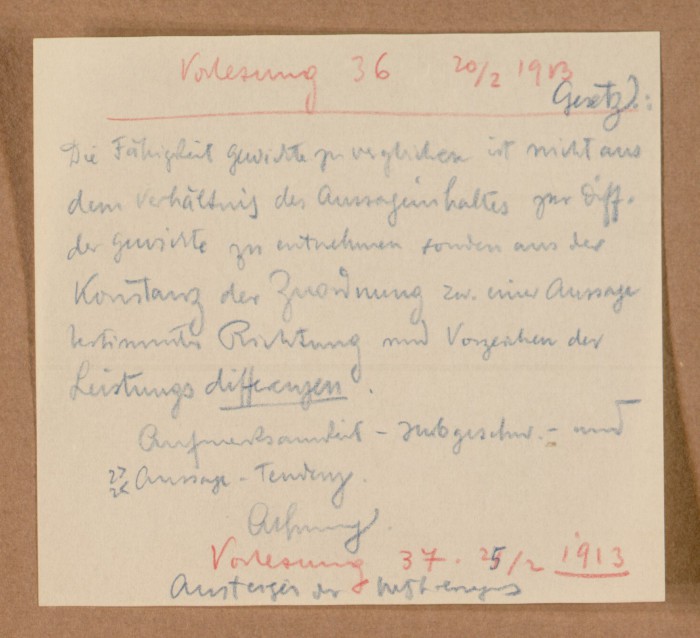 Vorlesung 36 20/2 1913
Gesetz):
Die Fähigkeit Gewichte zu vergleichen ist nicht aus
dem Verhältnis des Aussageinhaltes zur Diff.
der Gewichte zu entnehmen sondern aus der
Konstanz der Zuordnung zw. einer Aussage
bestimmter Richtung und Vorzeichen der
Leistungsdifferenzen.
Aufmerksamkeit - Subgeschw. - und
Aussage-Tendenz.
Athmung.
Vorlesung 37. 25/2 1913
Ansteigen der